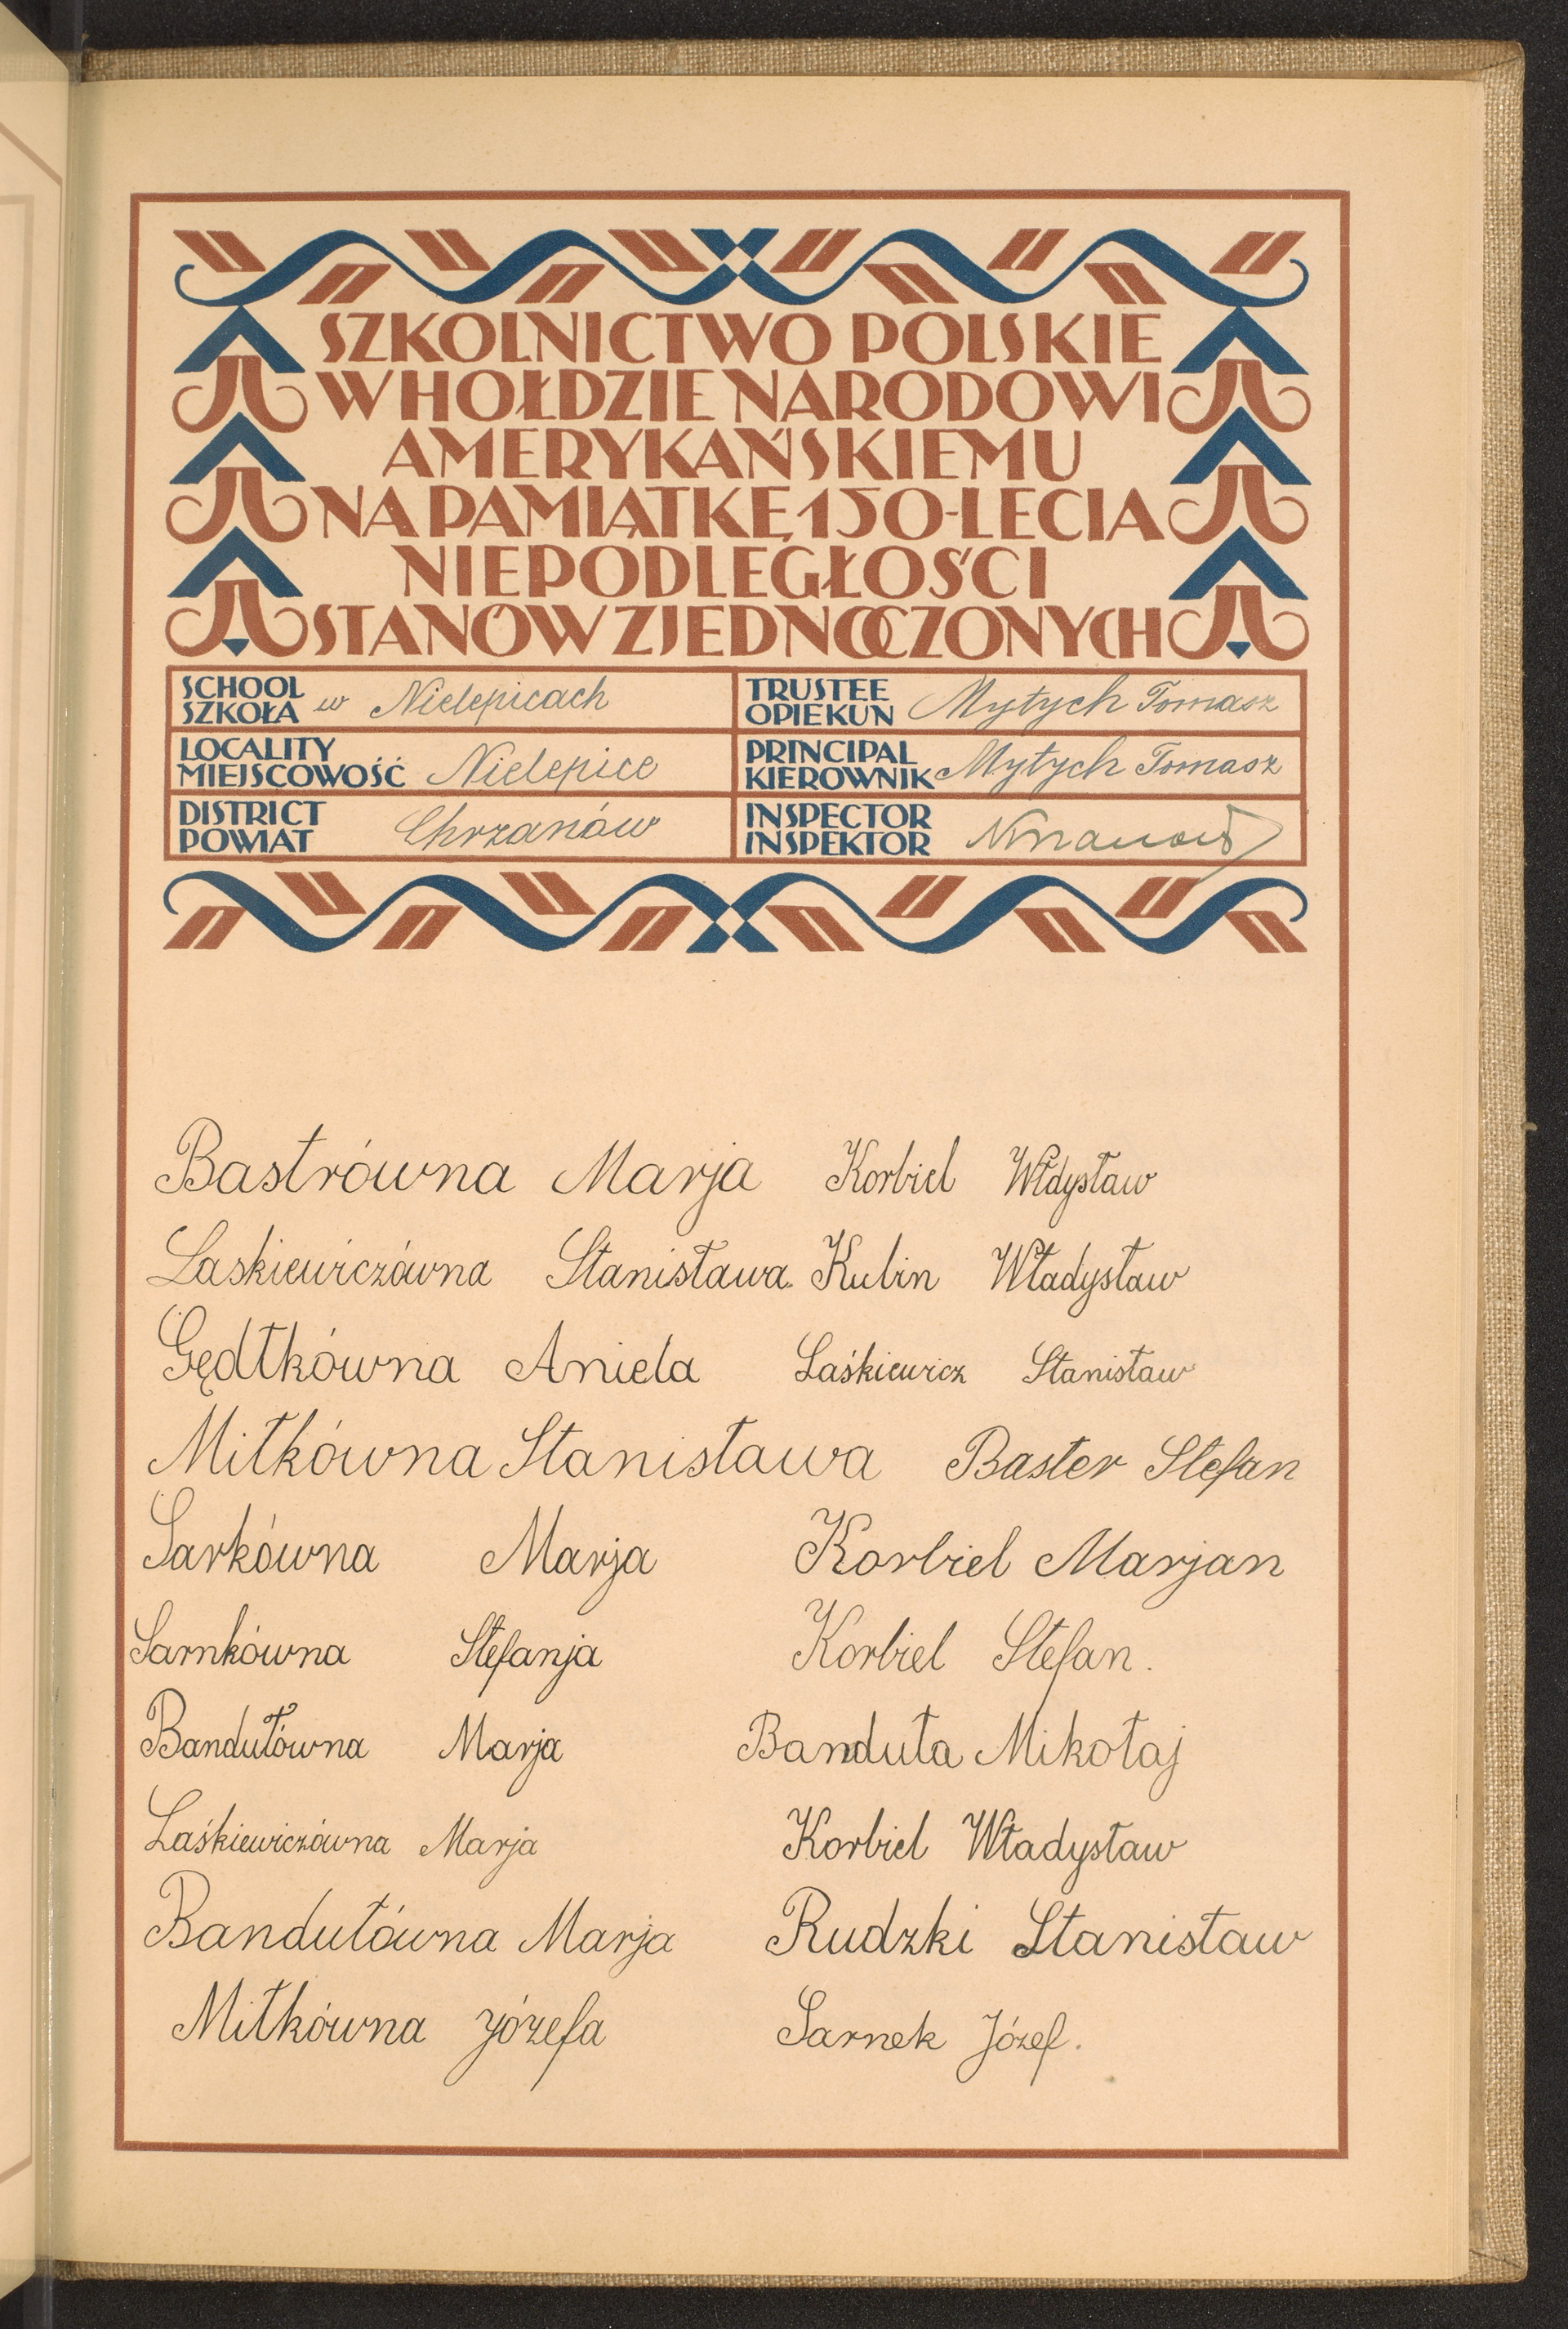 SZKOLNICTWO POLSKIE
W HOŁDZIE NARODOWI
AMERYKAŃSKIEMU
NA PAMIĄTKĘ 150-LECIA
NIEPODLEGŁOŚCI
STANÓW ZJEDNOCZONYCH
SCHOOL
SZKOŁA w Nielepicach
TRUSTEE
OPIEKUN Mytych Tomasz
LOCALITY
MIEJSCOWOŚĆ Nielepice
PRINCIPAL
KIEROWNIK Mytych Tomasz
DISTRICT
POWIAT Chrzanów
INSPECTOR
INSPEKTOR
Bastrówna Marja
Laskiewiczówna Stanisława.
Gędłkówna Aniela
Miłkówna Stanisława
Sarkówna Marja
Sarnkówna Stefanja
Bandułówna Marja
Laśkiewiczówna Marja
Bandułówna Marja
Miłkówna Józefa
Korbiel Włdysław
Kubin Władysław
Laśkiewicz Stanisław
Baster Stefan
Korbiel Marjan
Korbiel Stefan.
Banduła Mikołaj
Korbiel Władysław
Rudzki Stanisław
Sarnek Józef.